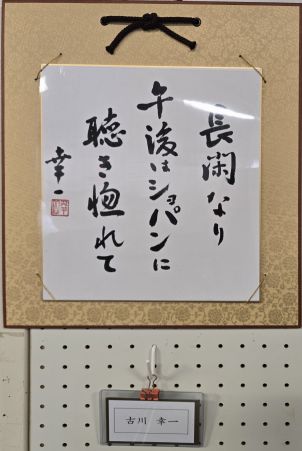 長閑なり
午後はショパンに
聴き惚れて
幸一
古川 幸一